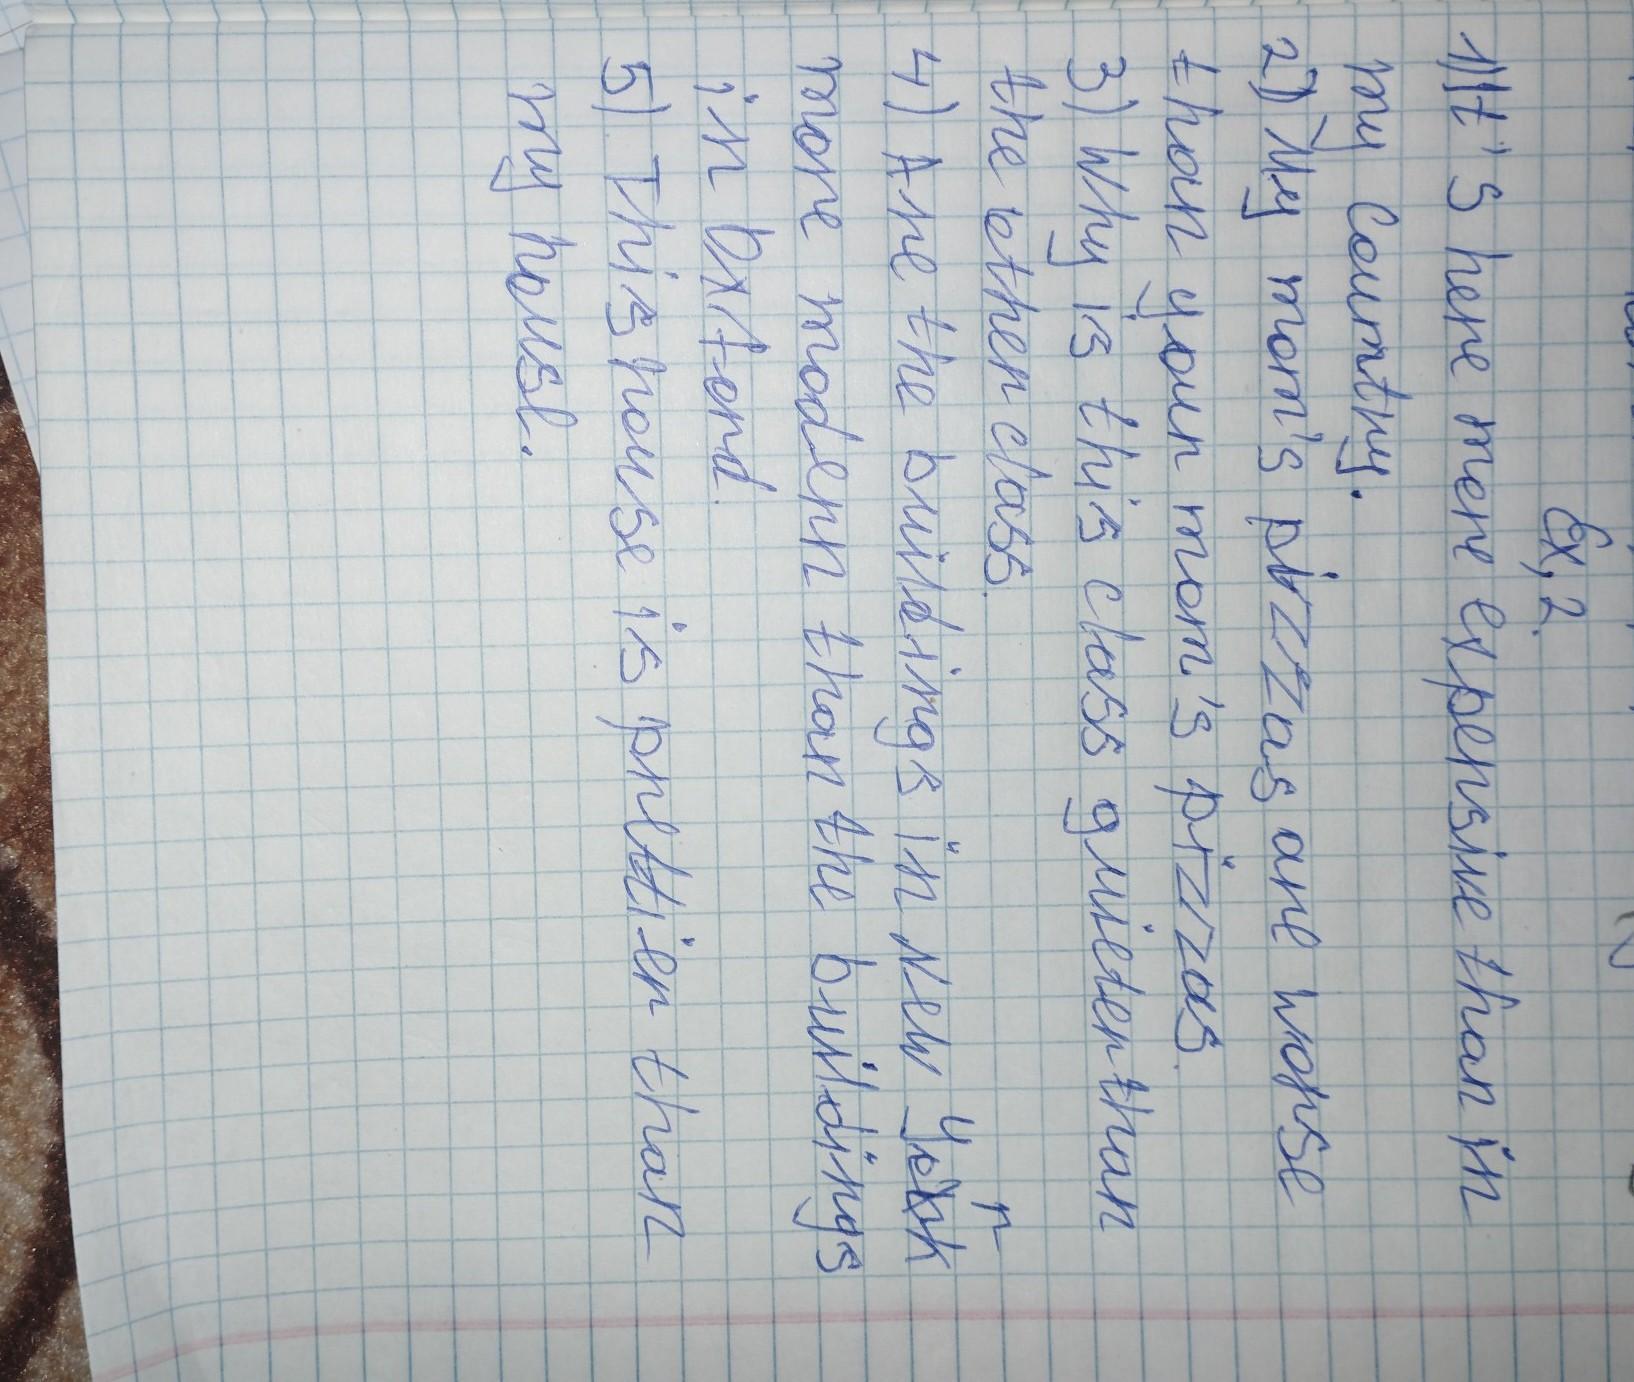 Ex. 2.
1) It's here more expensive than in
my country.
2) My mom's pizzas are worse
than your mom's pizzas.
3) Why is this class quieter than
the other class.
4) Are the buildings in New York
more modern than the buildings
in Oxford.
5) This house is prettier than
my house.